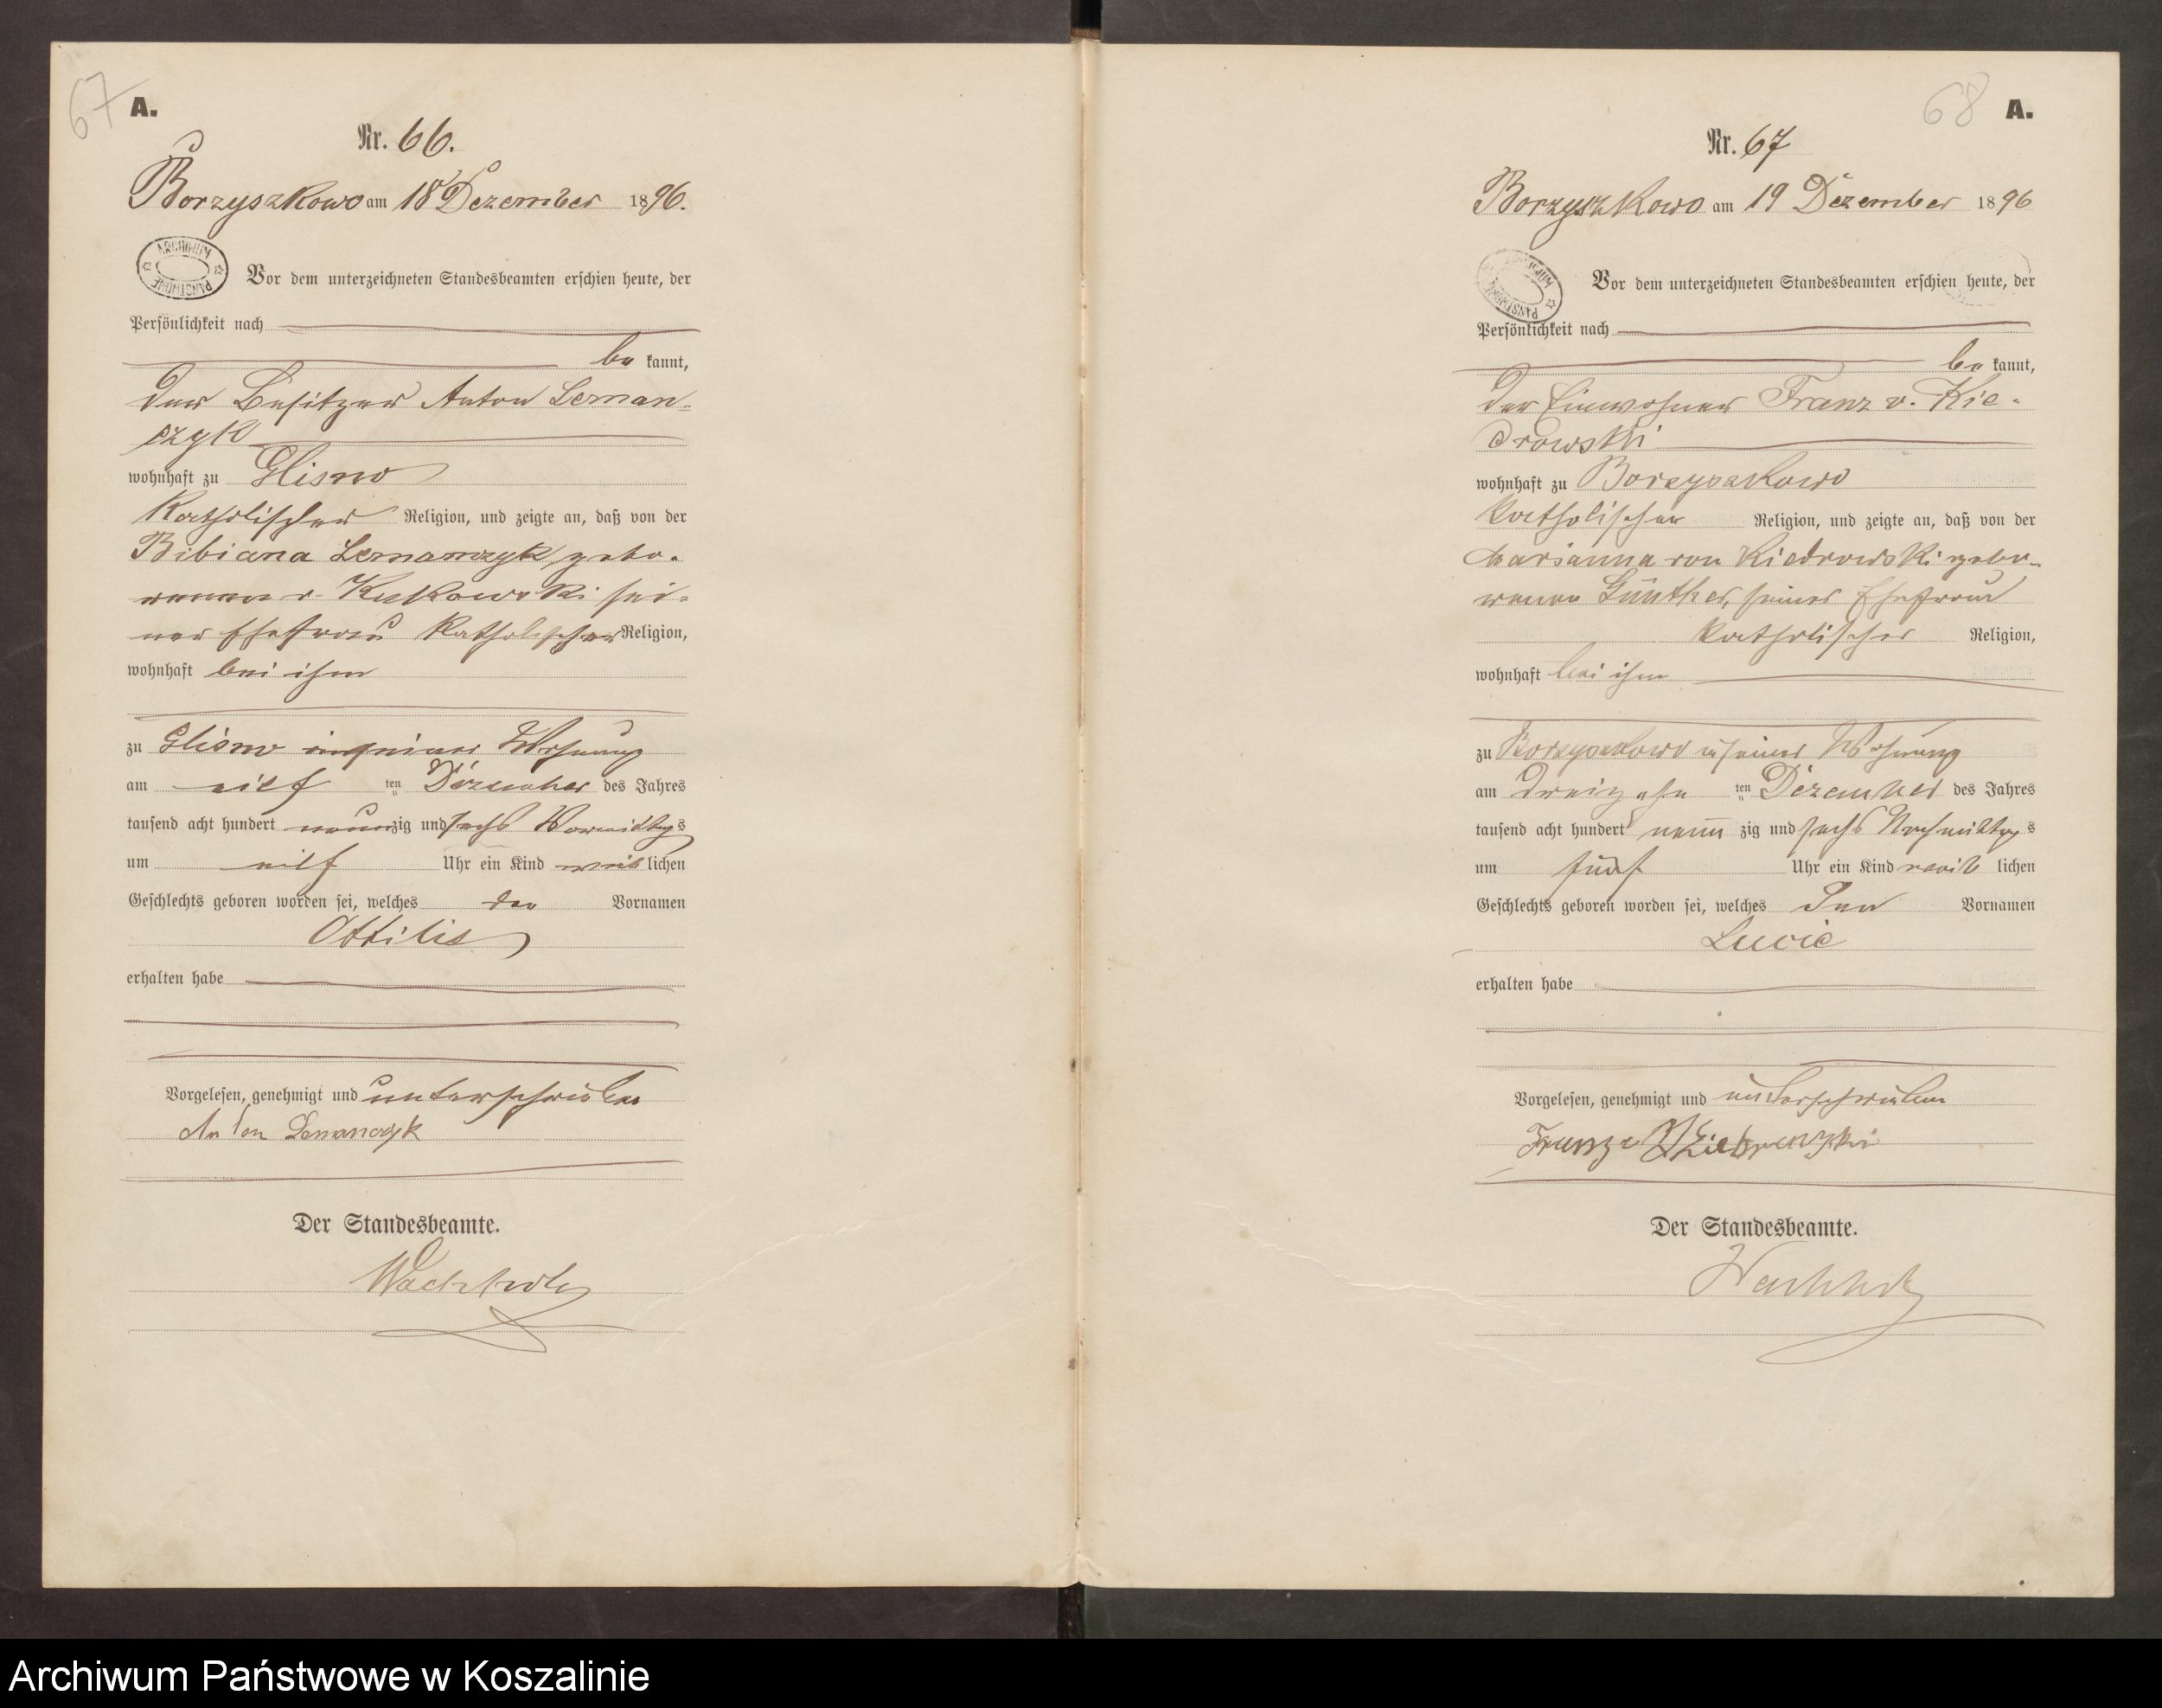 67
A.
Nr. 66.
Borzyszkowo am 18 Dezember 1896.
ARCHIWUM PAŃSTWOWE
Vor dem unterzeichneten Standesbeamten erschien heute, der
Persönlichkeit nach
be kannt,
der Besitzer Anton Leman=
czyk
wohnhaft zu Glisno
katholischer Religion, und zeigte an, daß von der
Bibiana Lemanczyk gebo=
renen v. Kukowski sei=
ner Ehefrau katholischer Religion,
wohnhaft bei ihm
zu Glisno in seiner Wohnung
am eilf ten Dezember des Jahres
tausend acht hundert neunzig und sechs Vormittags
um eilf Uhr ein Kind weiblichen
Geschlechts geboren worden sei, welches den Vornamen
Ottilie
erhalten habe
Vorgelesen, genehmigt und unterschrieben
Anton Lemanczyk
Der Standesbeamte.
68
A.
Nr. 67
Borzyszkowo am 19 Dezember 1896
PAŃSTWOWE
Vor dem unterzeichneten Standesbeamten erschien heute, der
Persönlichkeit nach
be kannt,
der Einwohner Franz v. Kie=
drowski
wohnhaft zu Borzyszkowo
katholischer Religion, und zeigte an, daß von der
Marianna von Kiedrowski gebo=
renen Günther, seiner Ehefrau
katholischer Religion,
wohnhaft bei ihm
zu Borzyszkowo in seiner Wohnung
am dreizehn ten Dezember des Jahres
tausend acht hundert neun zig und sechs Nachmittags
um fünf Uhr ein Kind weib lichen
Geschlechts geboren worden sei, welches den Vornamen
Lucie
erhalten habe
Vorgelesen, genehmigt und unterschrieben
Franz v
Der Standesbeamte.
Archiwum Państwowe w Koszalinie